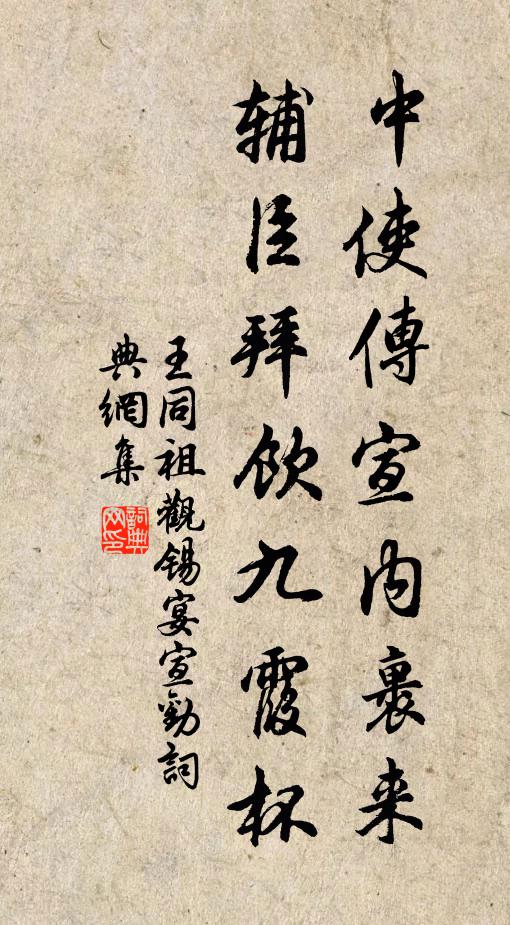 中使傳宣內裹来
辅臣拜飲九霞杯
王同祖觀錫宴宣勸詞
典網集
詞典網印